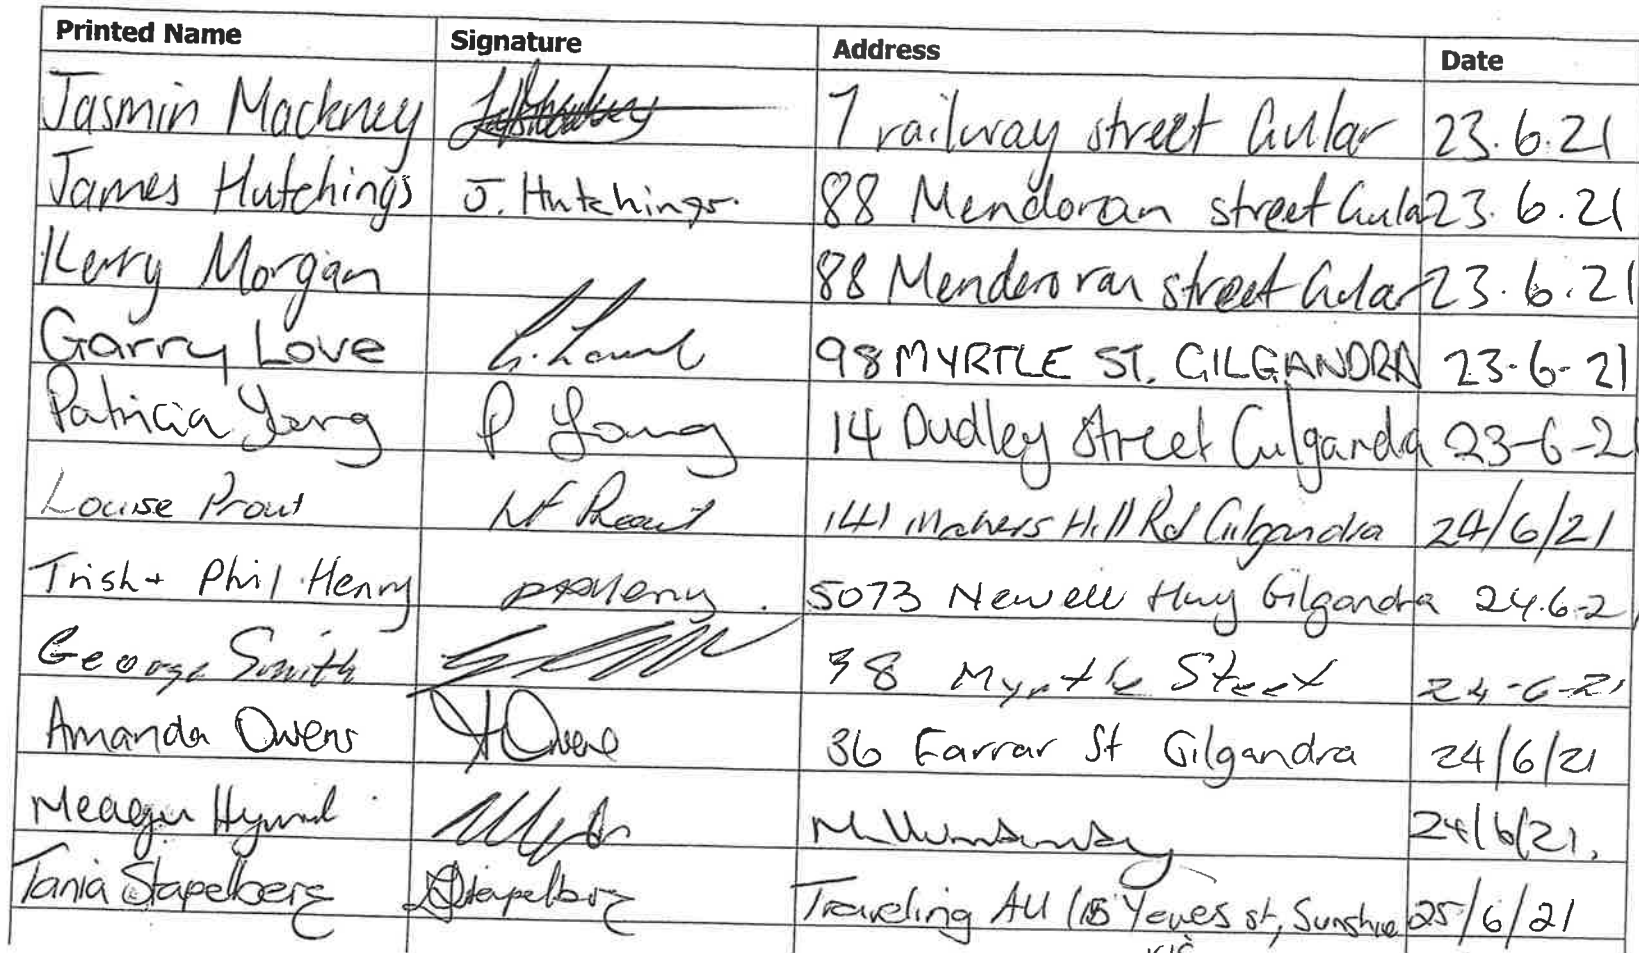 Printed Name Signature Address Date
Jasmin Mackney 7 railway street Gular 23.6.21
James Hutchings J. Hutchings. 88 Mendoran street Gula 23.6.21
Kerry Morgan 88 Menderoran street Gular 23.6.21
Garry Love G. Love 98 MYRTLE ST. GILGANDRA 23-6-21
Patricia Yong P Young 14 Dudley Street Gulganda 23-6-2
Louise Prout Prout 141 Mahers Hill Rd Gilgandra 24/6/21
Trish + Phil Henry Henry 5073 Newell Hwy Gilgandra 24.6-2
George Smith 38 Myrtle Steet 24-6-21
Amanda Owens A Owens 36 Farrar St Gilgandra 24/6/21
Meagan 24/6/21.
Tania Stapelberg Stapelberg Traveling AU (15 st, Sunshine 25/6/21